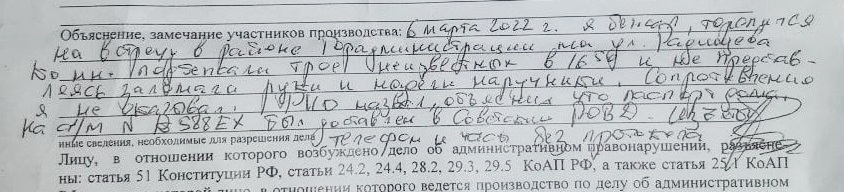 Объяснение, замечание участников производства: 6 марта 2022 г. я бежал, торопился
на встречу в районе Горадминистрации на ул. Радищева
Ко мне подбежали трое неизвестных в 16 50 и не представ-
ляясь заломали руки и надели наручники. Сопротивления
я не оказывал. ФИО назвал, объяснил что паспорт дома.
На а/м N В 588 ЕХ был доставлен в Советский РОВД.
иные сведения, необходимые для разрешения дела) телефон и часы без протокола
Лицу, в отношении которого возбуждено дело об административном правонарушении, разъясне-
ны: статья 51 Конституции РФ, статьи 24.2, 24.4, 28.2, 29.3, 29.5 КоАП РФ, а также статья 25.1 КоАП
в отношении которого ведется производство по делу об административном